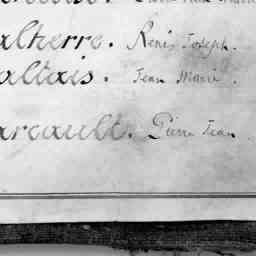 altherre. René Joseph.
altais. Jean Marie.
arcault. Pierre Jean